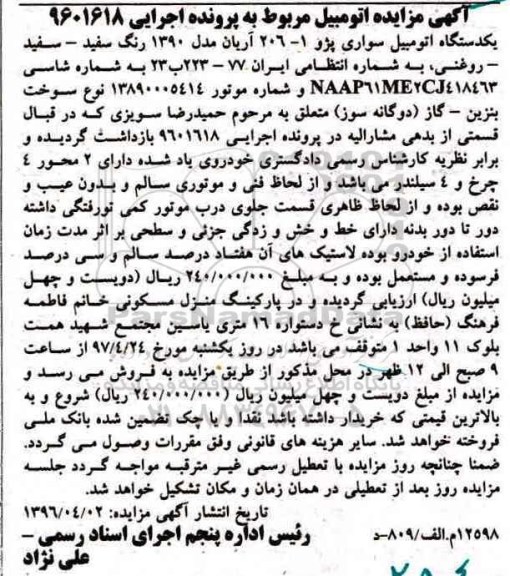 آگهی مزایده اتومبیل مربوط به پرونده اجرایی ۹۶۰۱۶۱۸
یکدستگاه اتومبیل سواری پژو ۱- ۲۰۶ آریان مدل ۱۳۹۰ رنگ سفید – سفید
– روغنی، به شماره انتظامی ایران ۷۷ – ۲۲۳ب۲۳ به شماره شاسی
NAAP۶۱ME۲CJ۴۱۸۴۶۳ و شماره موتور ۱۳۸۹۰۰۰۵۴۱۴ نوع سوخت
بنزین – گاز (دوگانه سوز) متعلق به مرحوم حمیدرضا سویزی که در قبال
قسمتی از بدهی مشارالیه در پرونده اجرایی ۹۶۰۱۶۱۸ بازداشت گردیده و
برابر نظریه کارشناس رسمی دادگستری خودروی یاد شده دارای ۲ محور ۴
چرخ و ۴ سیلندر می باشد و از لحاظ فنی و موتوری سالم و بدون عیب و
نقص بوده و از لحاظ ظاهری قسمت جلوی درب موتور کمی تورفتگی داشته
دور تا دور بدنه دارای خط و خش و زدگی جزئی و سطحی بر اثر مدت زمان
استفاده از خودرو بوده لاستیک های آن هفتاد درصد سالم و سی درصد
فرسوده و مستعمل بوده و به مبلغ ۲۴۰/۰۰۰/۰۰۰ ریال (دویست و چهل
میلیون ریال) ارزیابی گردیده و در پارکینگ منزل مسکونی خانم فاطمه
فرهنگ (حافظ) به نشانی خ دستواره ۱۶ متری یاسین مجتمع شهید همت
بلوک ۱۱ واحد ۱ متوقف می باشد در روز یکشنبه مورخ ۹۷/۴/۲۴ از ساعت
۹ صبح الی ۱۲ ظهر در محل مذکور از طریق مزایده به فروش می رسد و
مزایده از مبلغ دویست و چهل میلیون ریال (۲۴۰/۰۰۰/۰۰۰ ریال) شروع و به
بالاترین قیمتی که خریدار داشته باشد نقدا و یا چک تضمین شده بانک ملی
فروخته خواهد شد. سایر هزینه های قانونی وفق مقررات وصول می گردد.
ضمنا چنانچه روز مزایده با تعطیل رسمی غیر مترقبه مواجه گردد جلسه
مزایده روز بعد از تعطیلی در همان زمان و مکان تشکیل خواهد شد.
تاریخ انتشار آگهی مزایده: ۱۳۹۶/۰۴/۰۲
۱۲۵۹۸م.الف/۸۰۹-د رئیس اداره پنجم اجرای اسناد رسمی –
علی نژاد
ParsNamadData